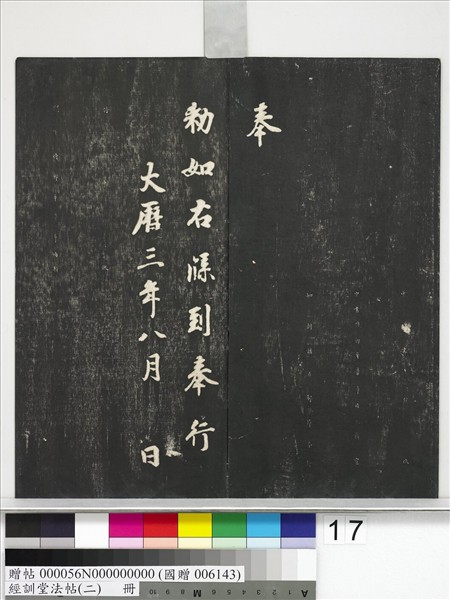 奉
勑如右牒到奉行
大曆三年八月 日
17
贈帖 000056N000000000 (國贈 006143)
經訓堂法帖(二) 冊